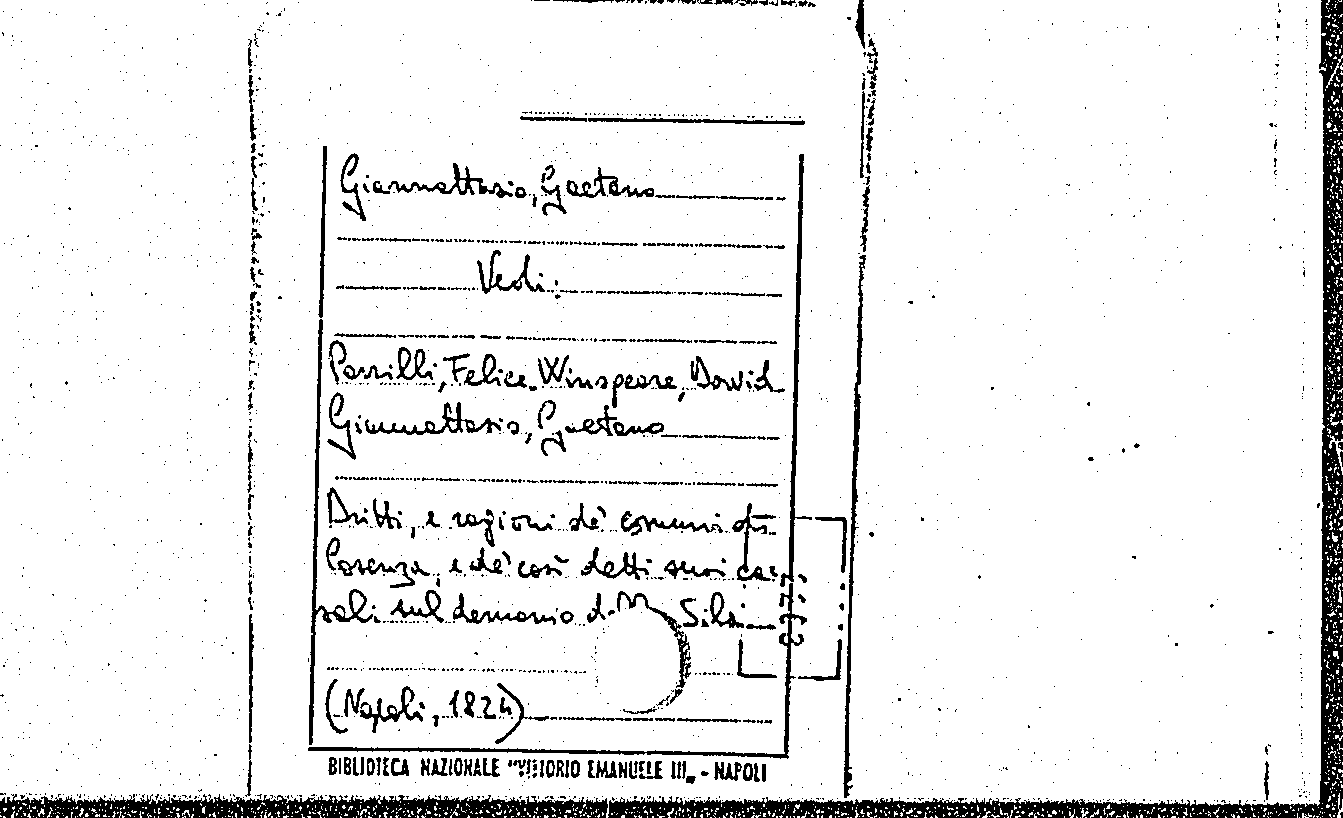 Giannattasio, Gaetano
Vedi:
Parrilli, Felice. Winspeare, David
Giannattasio, Gaetano
Dritti, e ragioni de' comuni di
Cosenza, e de' così detti suoi ca-
sali sul demanio della Sila
(Napoli, 1824)
BIBLIOTECA NAZIONALE "VITTORIO EMANUELE III„ - NAPOLI